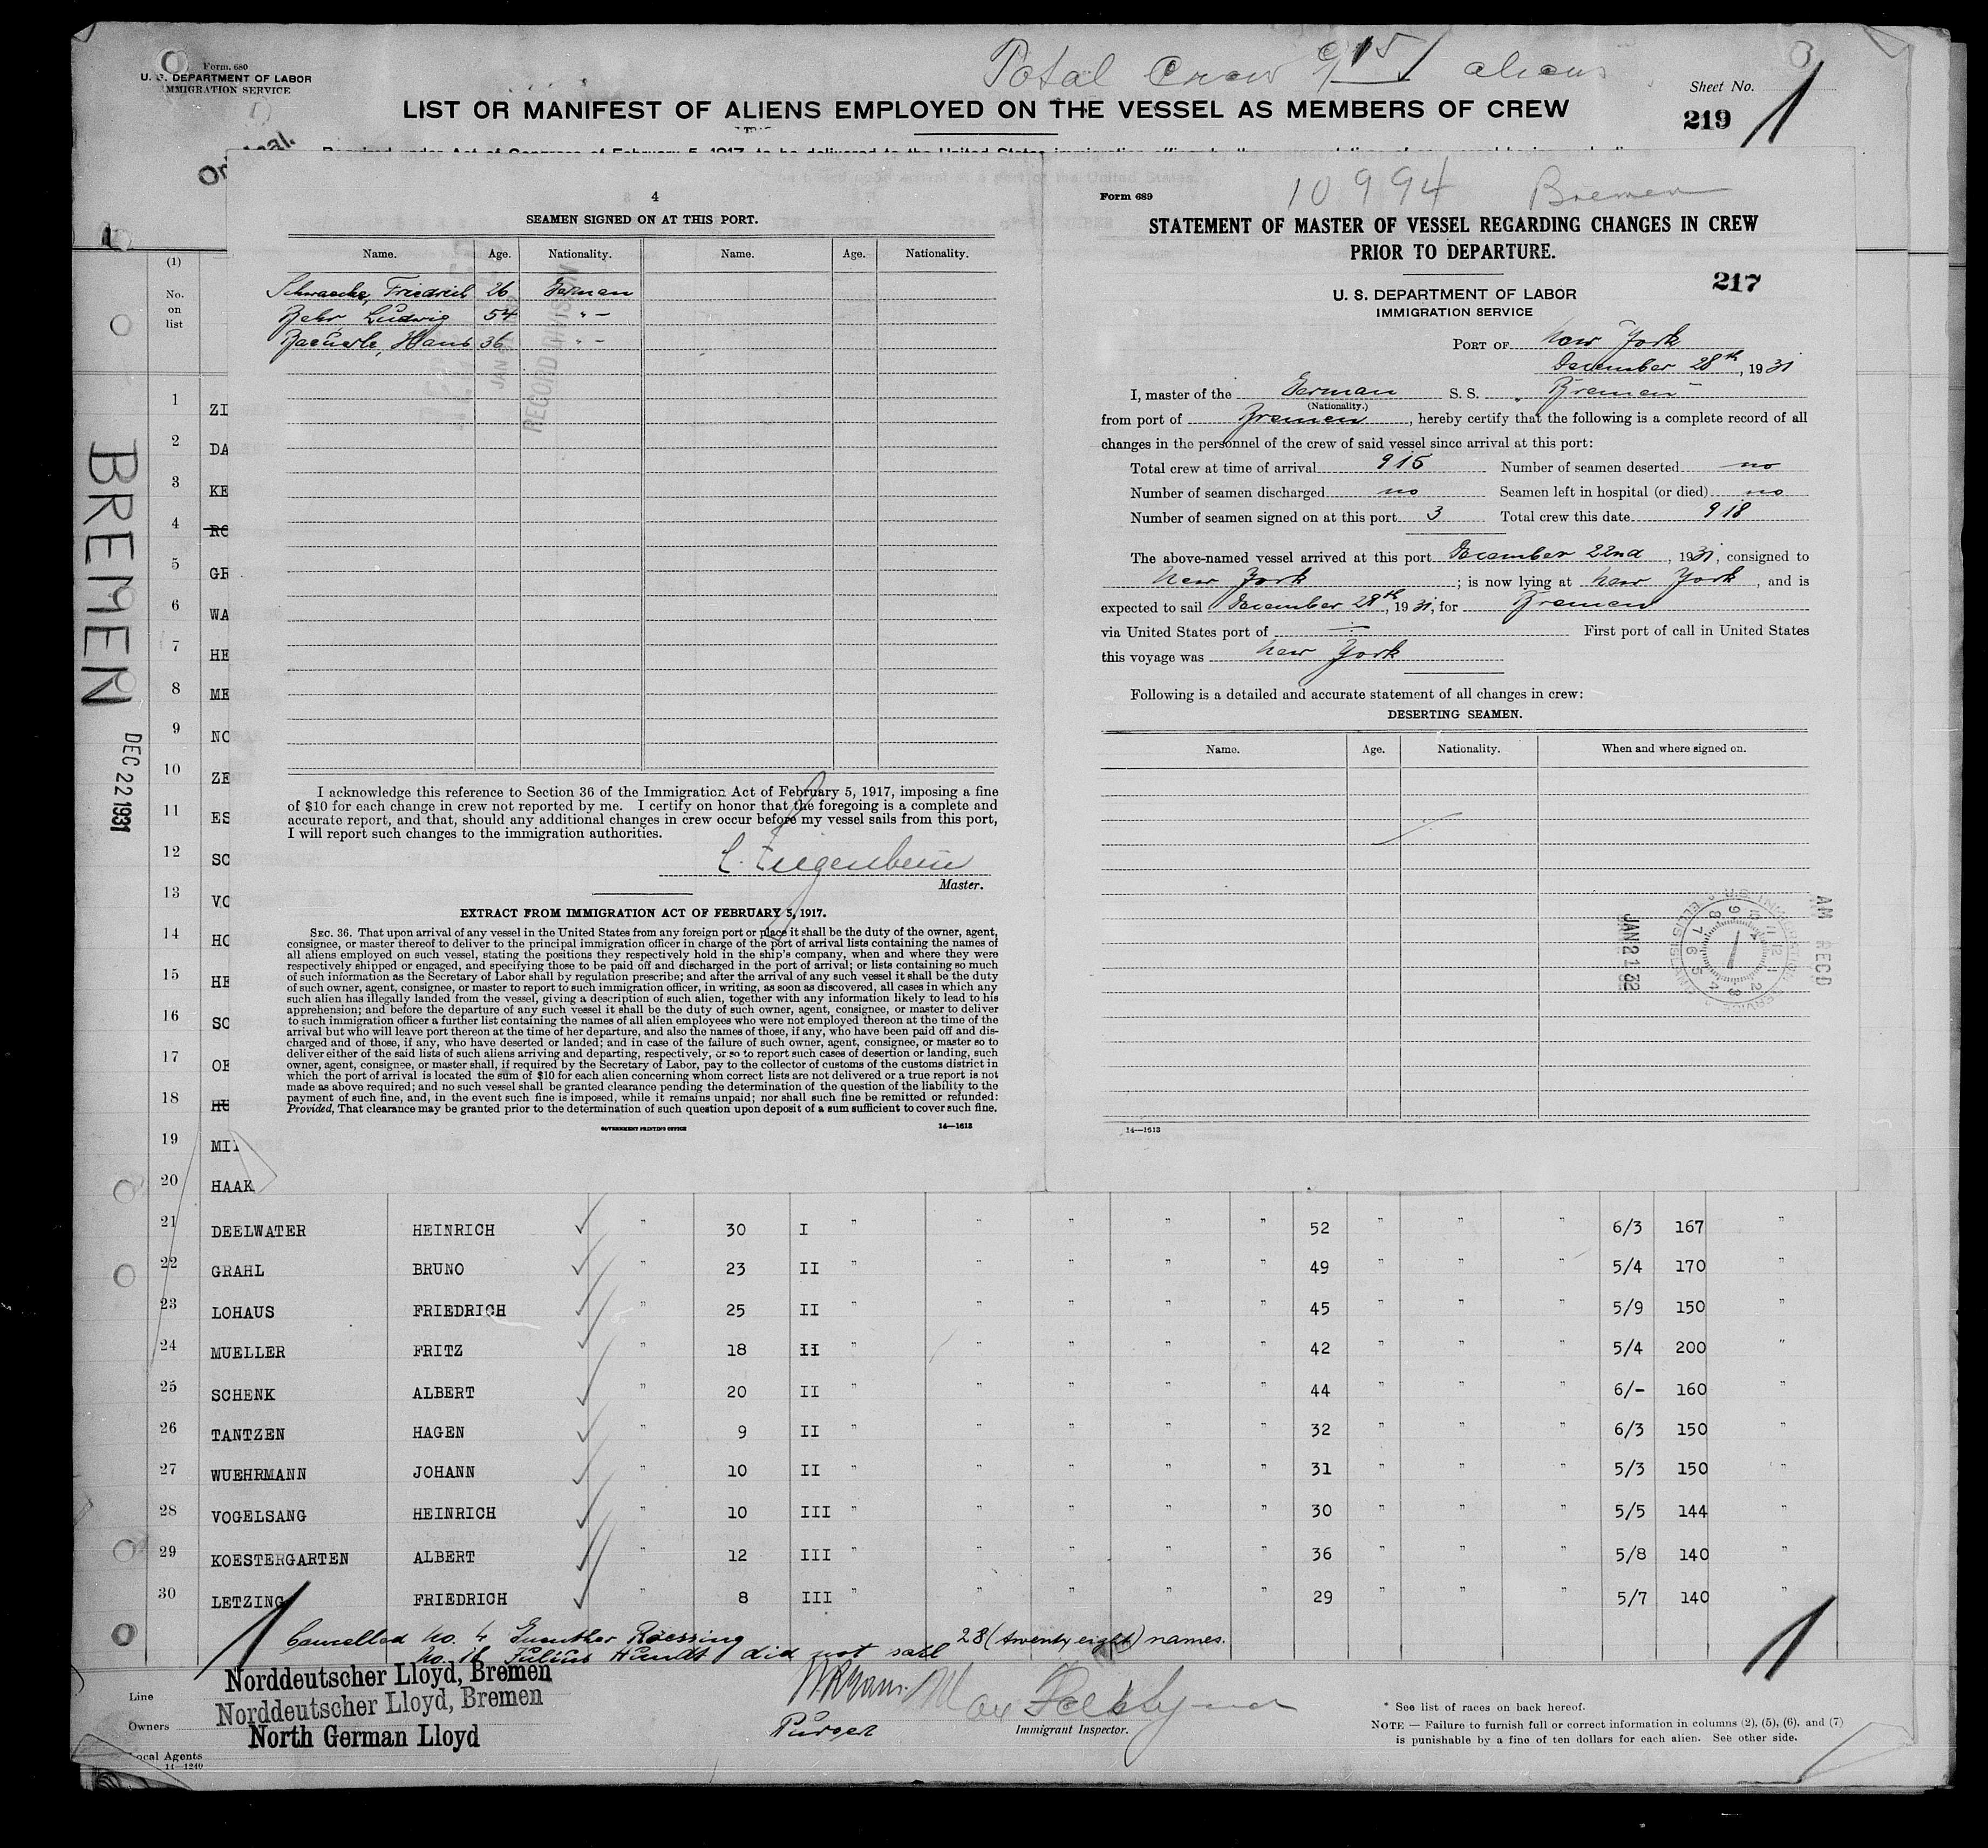 Form 680
U. S. DEPARTMENT OF LABOR
IMMIGRATION SERVICE
Total Crew 915 aliens
Sheet No. 1
219
LIST OR MANIFEST OF ALIENS EMPLOYED ON THE VESSEL AS MEMBERS OF CREW
Required under Act of Congress of February 5, 1917, to be delivered to the United States immigration officer by the representatives of any vessel having such aliens
on board upon arrival at a port of the United States.
BREMEN
DEC 22 1931
(1)
No.
on
list
1 ZI
2 DA
3 KE
4 RO
5 GR
6 WA
7 HE
8 ME
9 NO
10 ZE
11 ES
12 SC
13 VO
14 HO
15 HE
16 SC
17 OE
18 HU
19 MI
20 HAAK
4
SEAMEN SIGNED ON AT THIS PORT.
Name. Age. Nationality. Name. Age. Nationality.
Schwaecke, Friedrich 26 German
Behr Ludwig 54 " –
Baeuerle, Hans 36 " –
RECORD DIVISION
I acknowledge this reference to Section 36 of the Immigration Act of February 5, 1917, imposing a fine
of $10 for each change in crew not reported by me. I certify on honor that the foregoing is a complete and
accurate report, and that, should any additional changes in crew occur before my vessel sails from this port,
I will report such changes to the immigration authorities.
Master.
EXTRACT FROM IMMIGRATION ACT OF FEBRUARY 5, 1917.
SEC. 36. That upon arrival of any vessel in the United States from any foreign port or place it shall be the duty of the owner, agent,
consignee, or master thereof to deliver to the principal immigration officer in charge of the port of arrival lists containing the names of
all aliens employed on such vessel, stating the positions they respectively hold in the ship's company, when and where they were
respectively shipped or engaged, and specifying those to be paid off and discharged in the port of arrival; or lists containing so much
of such information as the Secretary of Labor shall by regulation prescribe; and after the arrival of any such vessel it shall be the duty
of such owner, agent, consignee, or master to report to such immigration officer, in writing, as soon as discovered, all cases in which any
such alien has illegally landed from the vessel, giving a description of such alien, together with any information likely to lead to his
apprehension; and before the departure of any such vessel it shall be the duty of such owner, agent, consignee, or master to deliver
to such immigration officer a further list containing the names of all alien employees who were not employed thereon at the time of the
arrival but who will leave port thereon at the time of her departure, and also the names of those, if any, who have been paid off and dis-
charged and of those, if any, who have deserted or landed; and in case of the failure of such owner, agent, consignee, or master so to
deliver either of the said lists of such aliens arriving and departing, respectively, or so to report such cases of desertion or landing, such
owner, agent, consignee, or master shall, if required by the Secretary of Labor, pay to the collector of customs of the customs district in
which the port of arrival is located the sum of $10 for each alien concerning whom correct lists are not delivered or a true report is not
made as above required; and no such vessel shall be granted clearance pending the determination of the question of the liability to the
payment of such fine, and, in the event such fine is imposed, while it remains unpaid; nor shall such fine be remitted or refunded:
Provided, That clearance may be granted prior to the determination of such question upon deposit of a sum sufficient to cover such fine.
GOVERNMENT PRINTING OFFICE 14—1613
Form 689 10994 Bremen
STATEMENT OF MASTER OF VESSEL REGARDING CHANGES IN CREW
PRIOR TO DEPARTURE.
217
U. S. DEPARTMENT OF LABOR
IMMIGRATION SERVICE
PORT OF New York
December 28th, 1931
I, master of the German S. S. "Bremen"
(Nationality.)
from port of Bremen, hereby certify that the following is a complete record of all
changes in the personnel of the crew of said vessel since arrival at this port:
Total crew at time of arrival 915 Number of seamen deserted no
Number of seamen discharged no Seamen left in hospital (or died) no
Number of seamen signed on at this port 3 Total crew this date 918
The above-named vessel arrived at this port December 22nd, 1931, consigned to
New York; is now lying at New York, and is
expected to sail December 28th, 1931, for Bremen
via United States port of — First port of call in United States
this voyage was New York
Following is a detailed and accurate statement of all changes in crew:
DESERTING SEAMEN.
Name. Age. Nationality. When and where signed on.
JAN 2 1932
AM RECD
14—1613
21 DEELWATER HEINRICH " 30 I " " " " " 52 " " " 6/3 167 "
22 GRAHL BRUNO " 23 II " " " " " 49 " " " 5/4 170 "
23 LOHAUS FRIEDRICH " 25 II " " " " " 45 " " " 5/9 150 "
24 MUELLER FRITZ " 18 II " " " " " 42 " " " 5/4 200 "
25 SCHENK ALBERT " 20 II " " " " " 44 " " " 6/- 160 "
26 TANTZEN HAGEN " 9 II " " " " " 32 " " " 6/3 150 "
27 WUEHRMANN JOHANN " 10 II " " " " " 31 " " " 5/3 150 "
28 VOGELSANG HEINRICH " 10 III " " " " " 30 " " " 5/5 144 "
29 KOESTERGARTEN ALBERT " 12 III " " " " " 36 " " " 5/8 140 "
30 LETZING FRIEDRICH " 8 III " " " " " 29 " " " 5/7 140 "
Cancelled No. 4 Guenther Roessing
No. 18 Julius Hundt did not sail 28 (twenty eight) names.
Line Norddeutscher Lloyd, Bremen
Owners Norddeutscher Lloyd, Bremen
Local Agents North German Lloyd
14—1240
Purser
Immigrant Inspector.
* See list of races on back hereof.
NOTE — Failure to furnish full or correct information in columns (2), (5), (6), and (7)
is punishable by a fine of ten dollars for each alien. See other side.